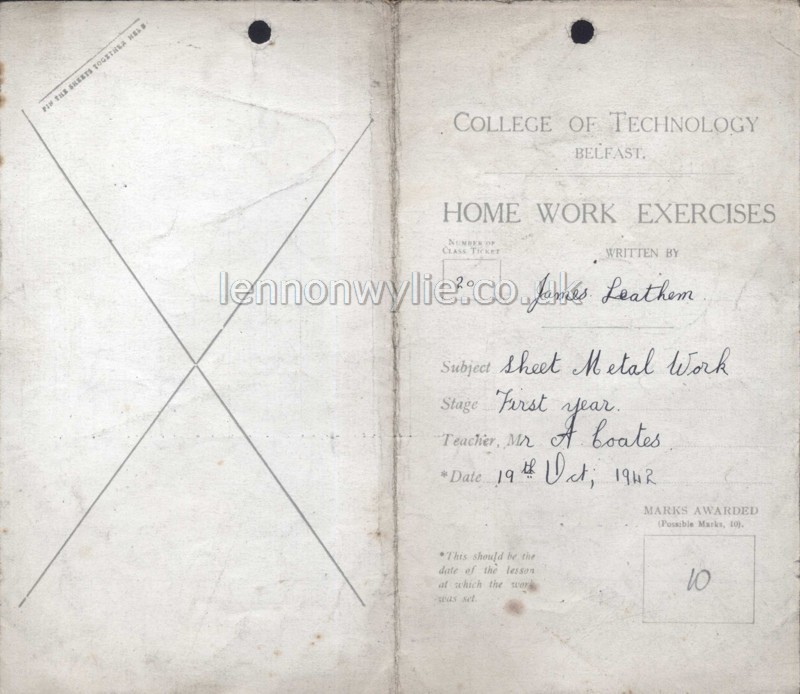 PIN THE SHEETS TOGETHER HERE
COLLEGE OF TECHNOLOGY
BELFAST.
HOME WORK EXERCISES
NUMBER OF
CLASS TICKET
20
WRITTEN BY
James Leathem.
lennonwylie.co.uk
Subject Sheet Metal Work
Stage First year.
Teacher, Mr A Coates
*Date 19th Oct, 1942
MARKS AWARDED
(Possible Marks, 10).
10
*This should be the
date of the lesson
at which the work
was set.